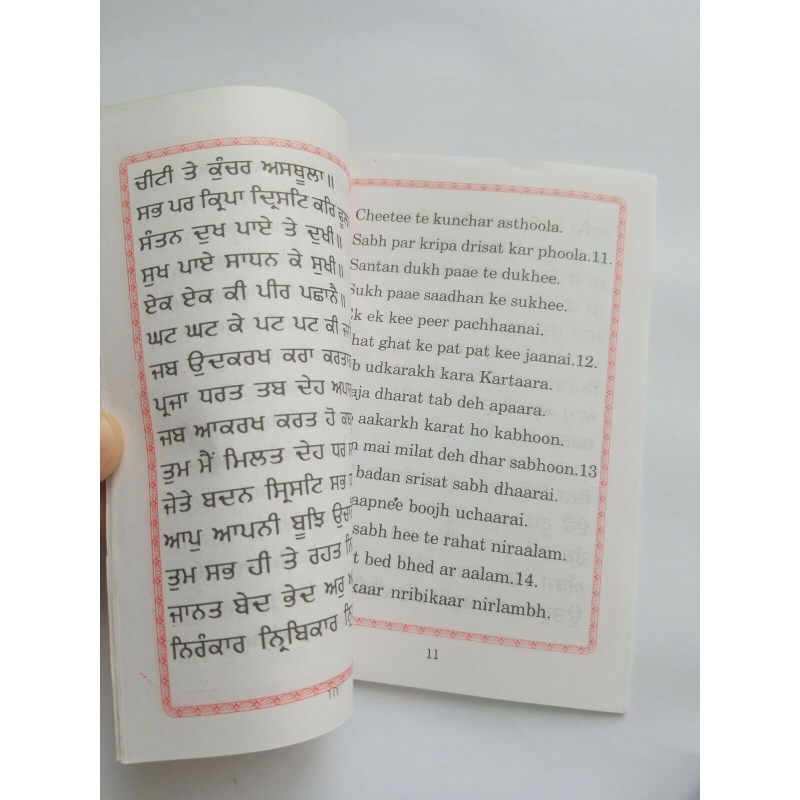 ਚੀਟੀ ਤੇ ਕੁੰਚਰ ਅਸਥੂਲਾ॥
ਸਭ ਪਰ ਕ੍ਰਿਪਾ ਦ੍ਰਿਸਟਿ ਕਰਿ
ਸੰਤਨ ਦੁਖ ਪਾਏ ਤੇ ਦੁਖੀ॥
ਸੁਖ ਪਾਏ ਸਾਧਨ ਕੇ ਸੁਖੀ॥
ਏਕ ਏਕ ਕੀ ਪੀਰ ਪਛਾਨੈ॥
ਘਟ ਘਟ ਕੇ ਪਟ ਪਟ ਕੀ
ਜਬ ਉਦਕਰਖ ਕਰਾ
ਪ੍ਰਜਾ ਧਰਤ ਤਬ ਦੇਹ
ਜਬ ਆਕਰਖ ਕਰਤ ਹੋ
ਤੁਮ ਮੈਂ ਮਿਲਤ ਦੇਹ ਧਰ
ਜੇਤੇ ਬਦਨ ਸ੍ਰਿਸਟਿ ਸਭ
ਆਪੁ ਆਪਨੀ ਬੂਝਿ
ਤੁਮ ਸਭ ਹੀ ਤੇ ਰਹਤ
ਜਾਨਤ ਬੇਦ ਭੇਦ ਅਰੁ
ਨਿਰੰਕਾਰ ਨ੍ਰਿਬਿਕਾਰ
Cheetee te kunchar asthoola.
Sabh par kripa drisat kar phoola.11.
Santan dukh paae te dukhee.
Sukh paae saadhan ke sukhee.
ek kee peer pachhaanai.
hat ghat ke pat pat kee jaanai.12.
b udkarakh kara Kartaara.
aja dharat tab deh apaara.
aakarkh karat ho kabhoon.
n mai milat deh dhar sabhoon.13
badan srisat sabh dhaarai.
aapnee boojh uchaarai.
sabh hee te rahat niraalam.
t bed bhed ar aalam.14.
kaar nribikaar nirlambh.
11